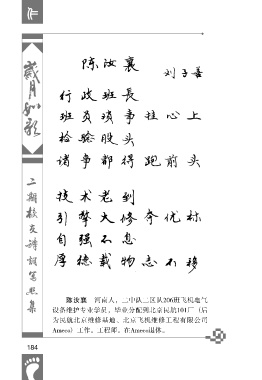 作
岁月如歌
二期校友诗词写照集
陈汝襄
刘子善
行政班长
班员琐事挂心上
检验股头
诸事都得跑前头
技术老到
引擎大修夺优标
自强不息
厚德载物志不移
陈汝襄 河南人，二中队二区队206班飞机电气
设备维护专业学员，毕业分配到北京民航101厂（后
为民航北京维修基地、北京飞机维修工程有限公司
Ameco）工作。工程师。在Ameco退休。
184